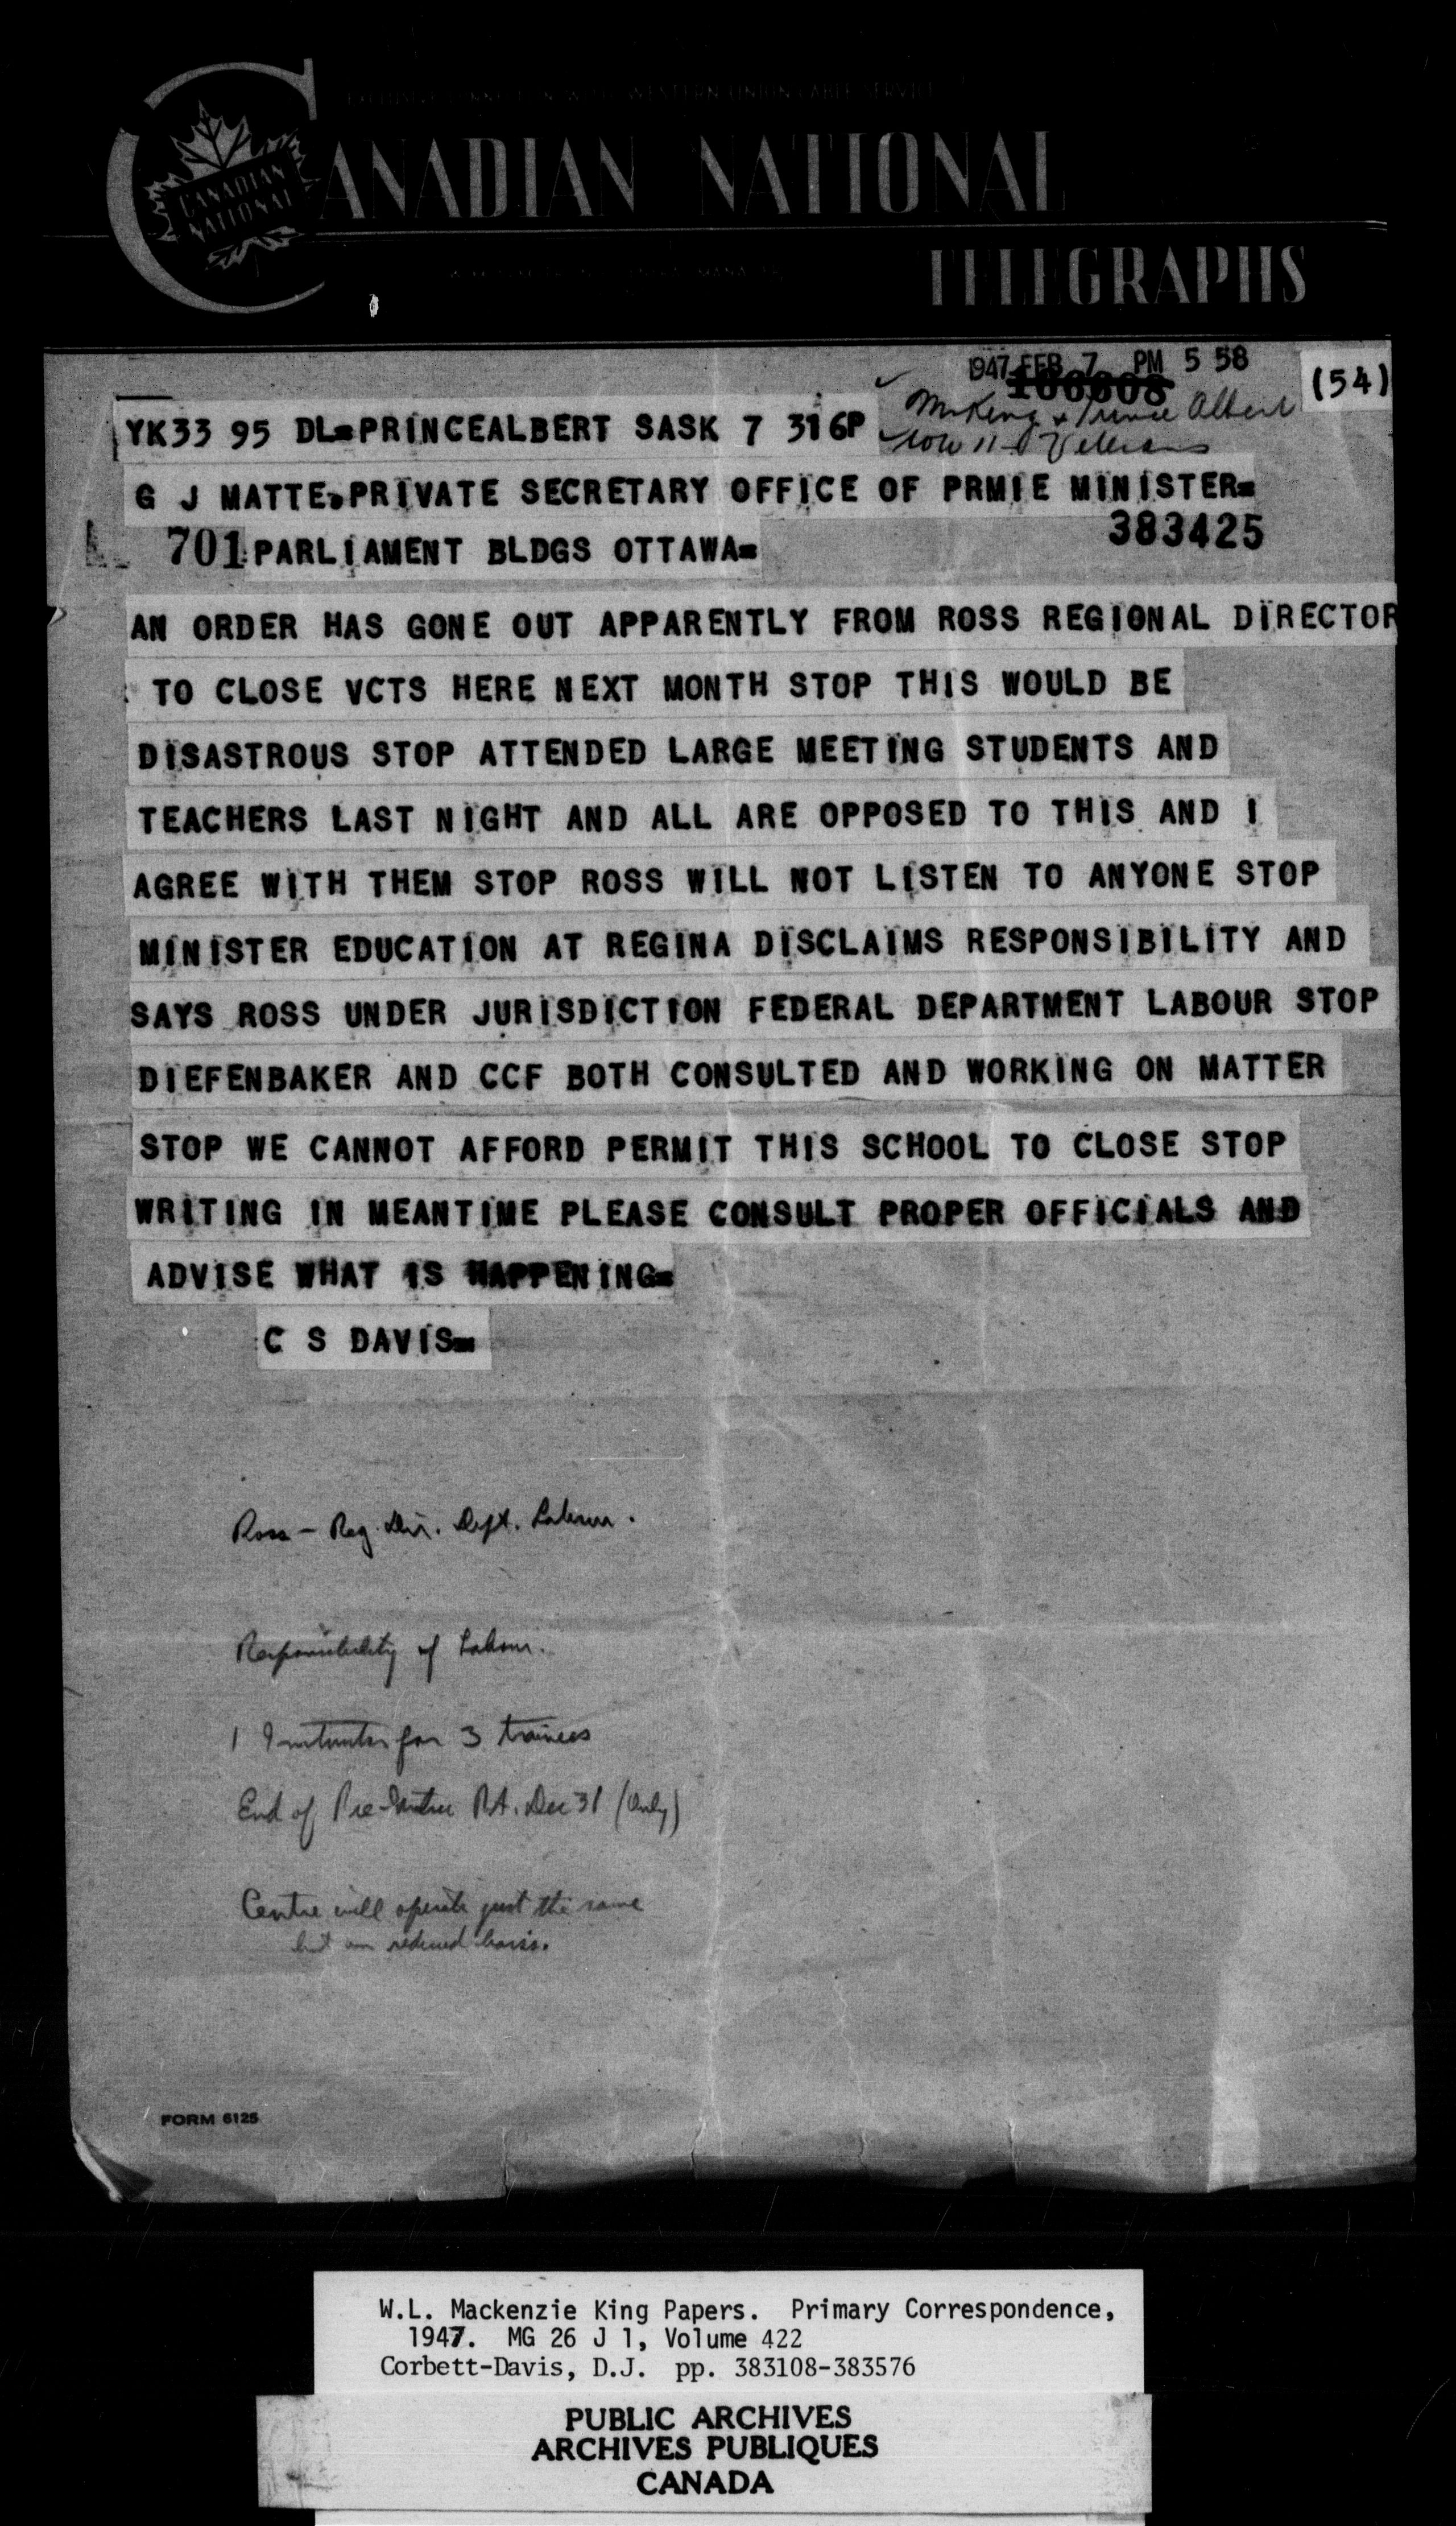 EXCLUSIVE CONNECTION WITH WESTERN UNION CABLE SERVICE
CANADIAN NATIONAL
CANADIAN
NATIONAL
TELEGRAPHS
1947 FEB 7 PM 5 58
100608
(54)
Mr King & Prince Albert
Veterans
YK33 95 DL=PRINCEALBERT SASK 7 316P
G J MATTE, PRIVATE SECRETARY OFFICE OF PRMIE MINISTER=
383425
701 PARLIAMENT BLDGS OTTAWA=
AN ORDER HAS GONE OUT APPARENTLY FROM ROSS REGIONAL DIRECTOR
TO CLOSE VCTS HERE NEXT MONTH STOP THIS WOULD BE
DISASTROUS STOP ATTENDED LARGE MEETING STUDENTS AND
TEACHERS LAST NIGHT AND ALL ARE OPPOSED TO THIS AND I
AGREE WITH THEM STOP ROSS WILL NOT LISTEN TO ANYONE STOP
MINISTER EDUCATION AT REGINA DISCLAIMS RESPONSIBILITY AND
SAYS ROSS UNDER JURISDICTION FEDERAL DEPARTMENT LABOUR STOP
DIEFENBAKER AND CCF BOTH CONSULTED AND WORKING ON MATTER
STOP WE CANNOT AFFORD PERMIT THIS SCHOOL TO CLOSE STOP
WRITING IN MEANTIME PLEASE CONSULT PROPER OFFICIALS AND
ADVISE WHAT IS HAPPENING=
C S DAVIS=
Ross - Reg. Dir. Dept. Labour.
Responsibility of Labour.
1 Instructor for 3 trainees
End of Pre-Matric P.A. Dec 31 (Only)
Centre will operate just the same
but on reduced basis.
FORM 6125
W.L. Mackenzie King Papers. Primary Correspondence,
1947. MG 26 J 1, Volume 422
Corbett-Davis, D.J. pp. 383108-383576
PUBLIC ARCHIVES
ARCHIVES PUBLIQUES
CANADA